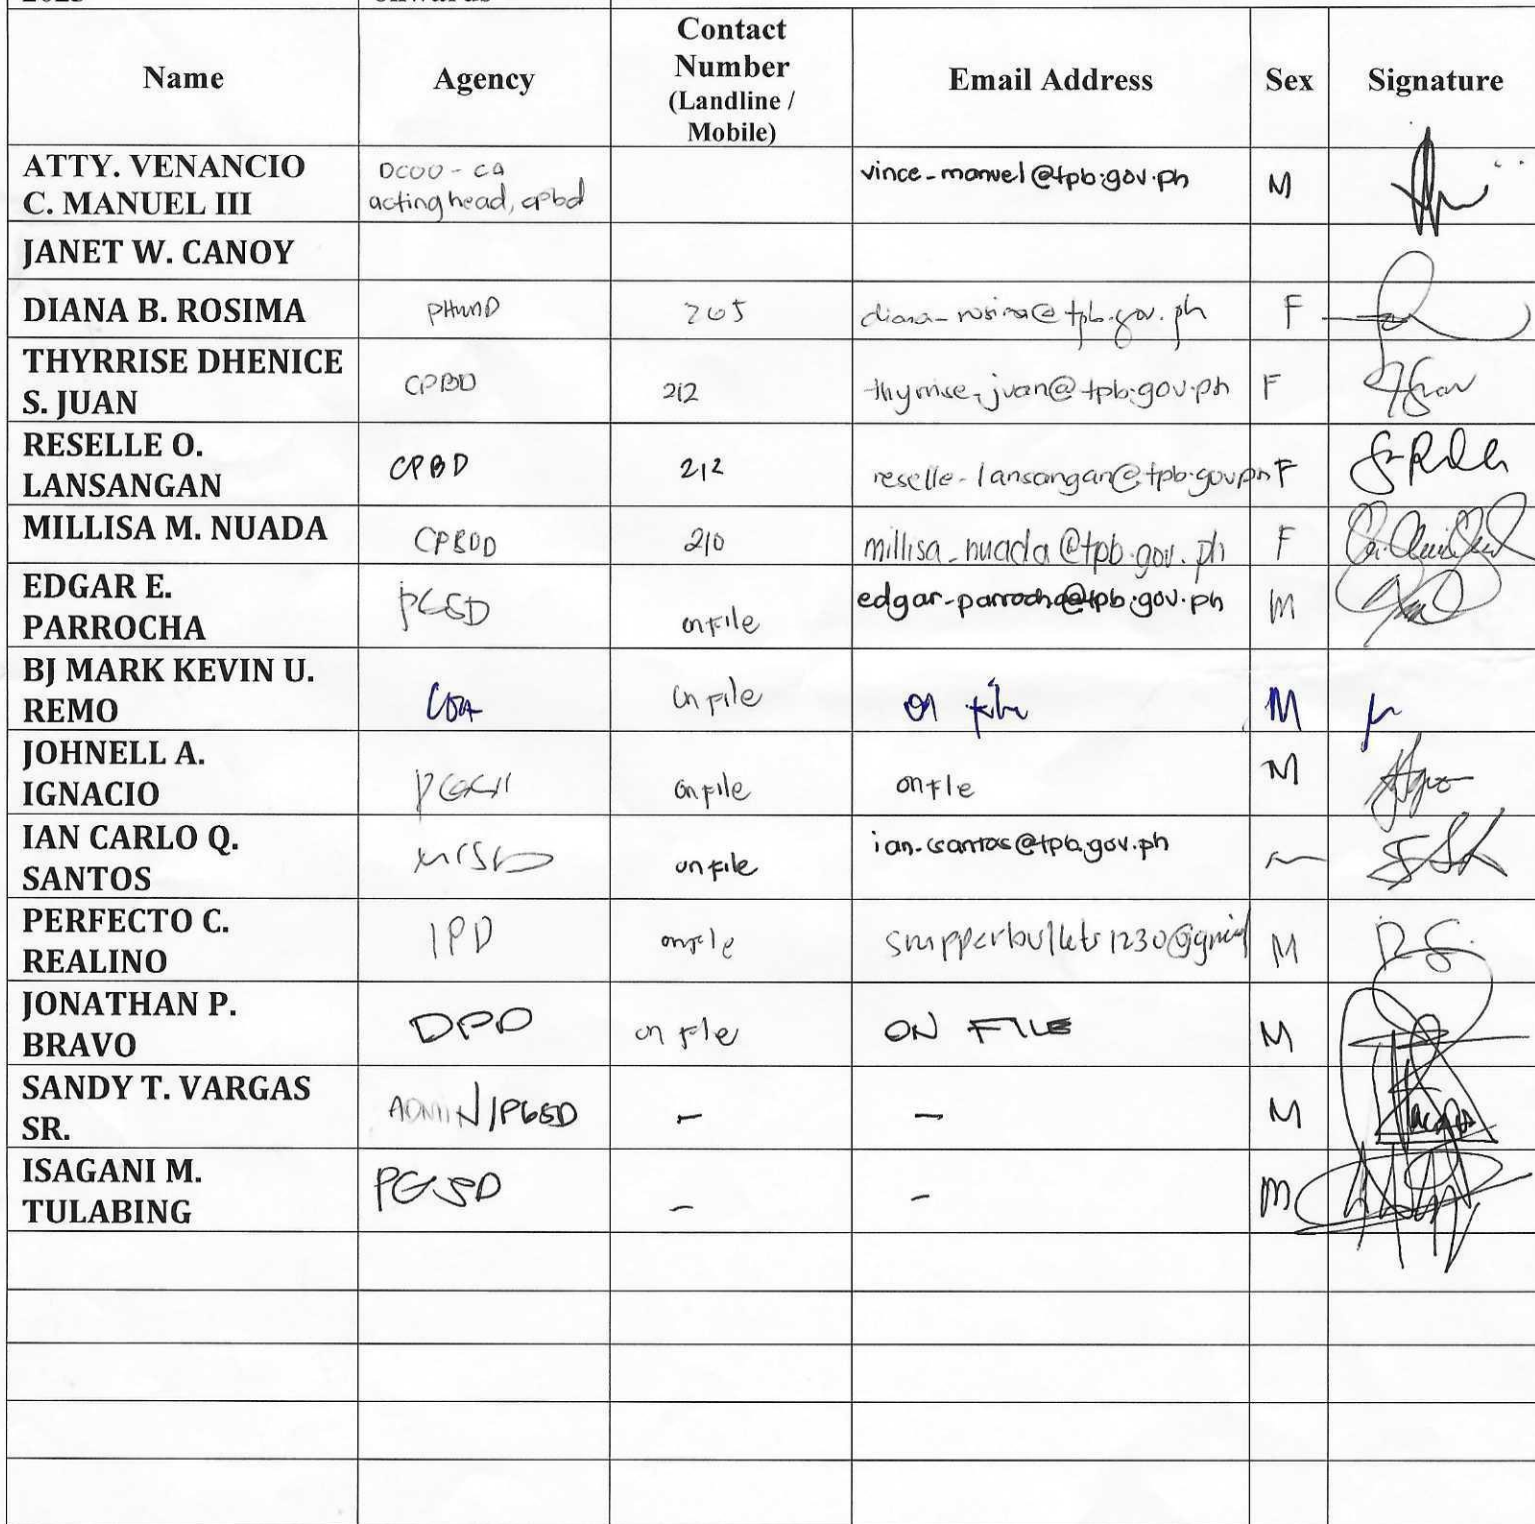 Name Agency Contact Number (Landline / Mobile) Email Address Sex Signature
ATTY. VENANCIO
C. MANUEL III
DCOO - CA
acting head, cpbd
vince_manuel@tpb.gov.ph
M
JANET W. CANOY
DIANA B. ROSIMA
PHMD
205
diana_rosima@tpb.gov.ph
F
THYRRISE DHENICE
S. JUAN
CPBD
212
thyrrise_juan@tpb.gov.ph
F
RESELLE O.
LANSANGAN
CPBD
212
reselle_lansangan@tpb.gov.ph
F
MILLISA M. NUADA
CPBDD
210
millisa_nuada@tpb.gov.ph
F
EDGAR E.
PARROCHA
PGSD
on file
edgar_parrocha@tpb.gov.ph
M
BJ MARK KEVIN U.
REMO
on file
on file
M
JOHNELL A.
IGNACIO
on file
on file
M
IAN CARLO Q.
SANTOS
on file
PERFECTO C.
REALINO
IPD
on file
M
JONATHAN P.
BRAVO
DPD
on file
ON FILE
M
SANDY T. VARGAS
SR.
ADMIN/PGSD
-
-
M
ISAGANI M.
TULABING
PGSD
-
-
M